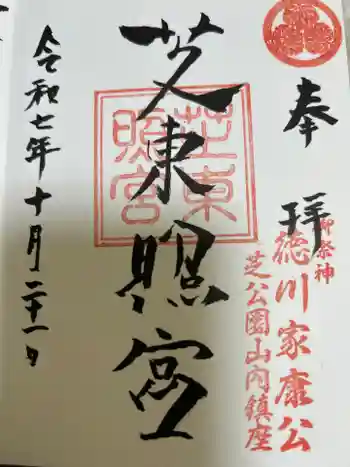 奉拝
御祭神
徳川家康公
芝公園山内鎮座
芝東照宮
芝東照宮
令和七年十月二十一日